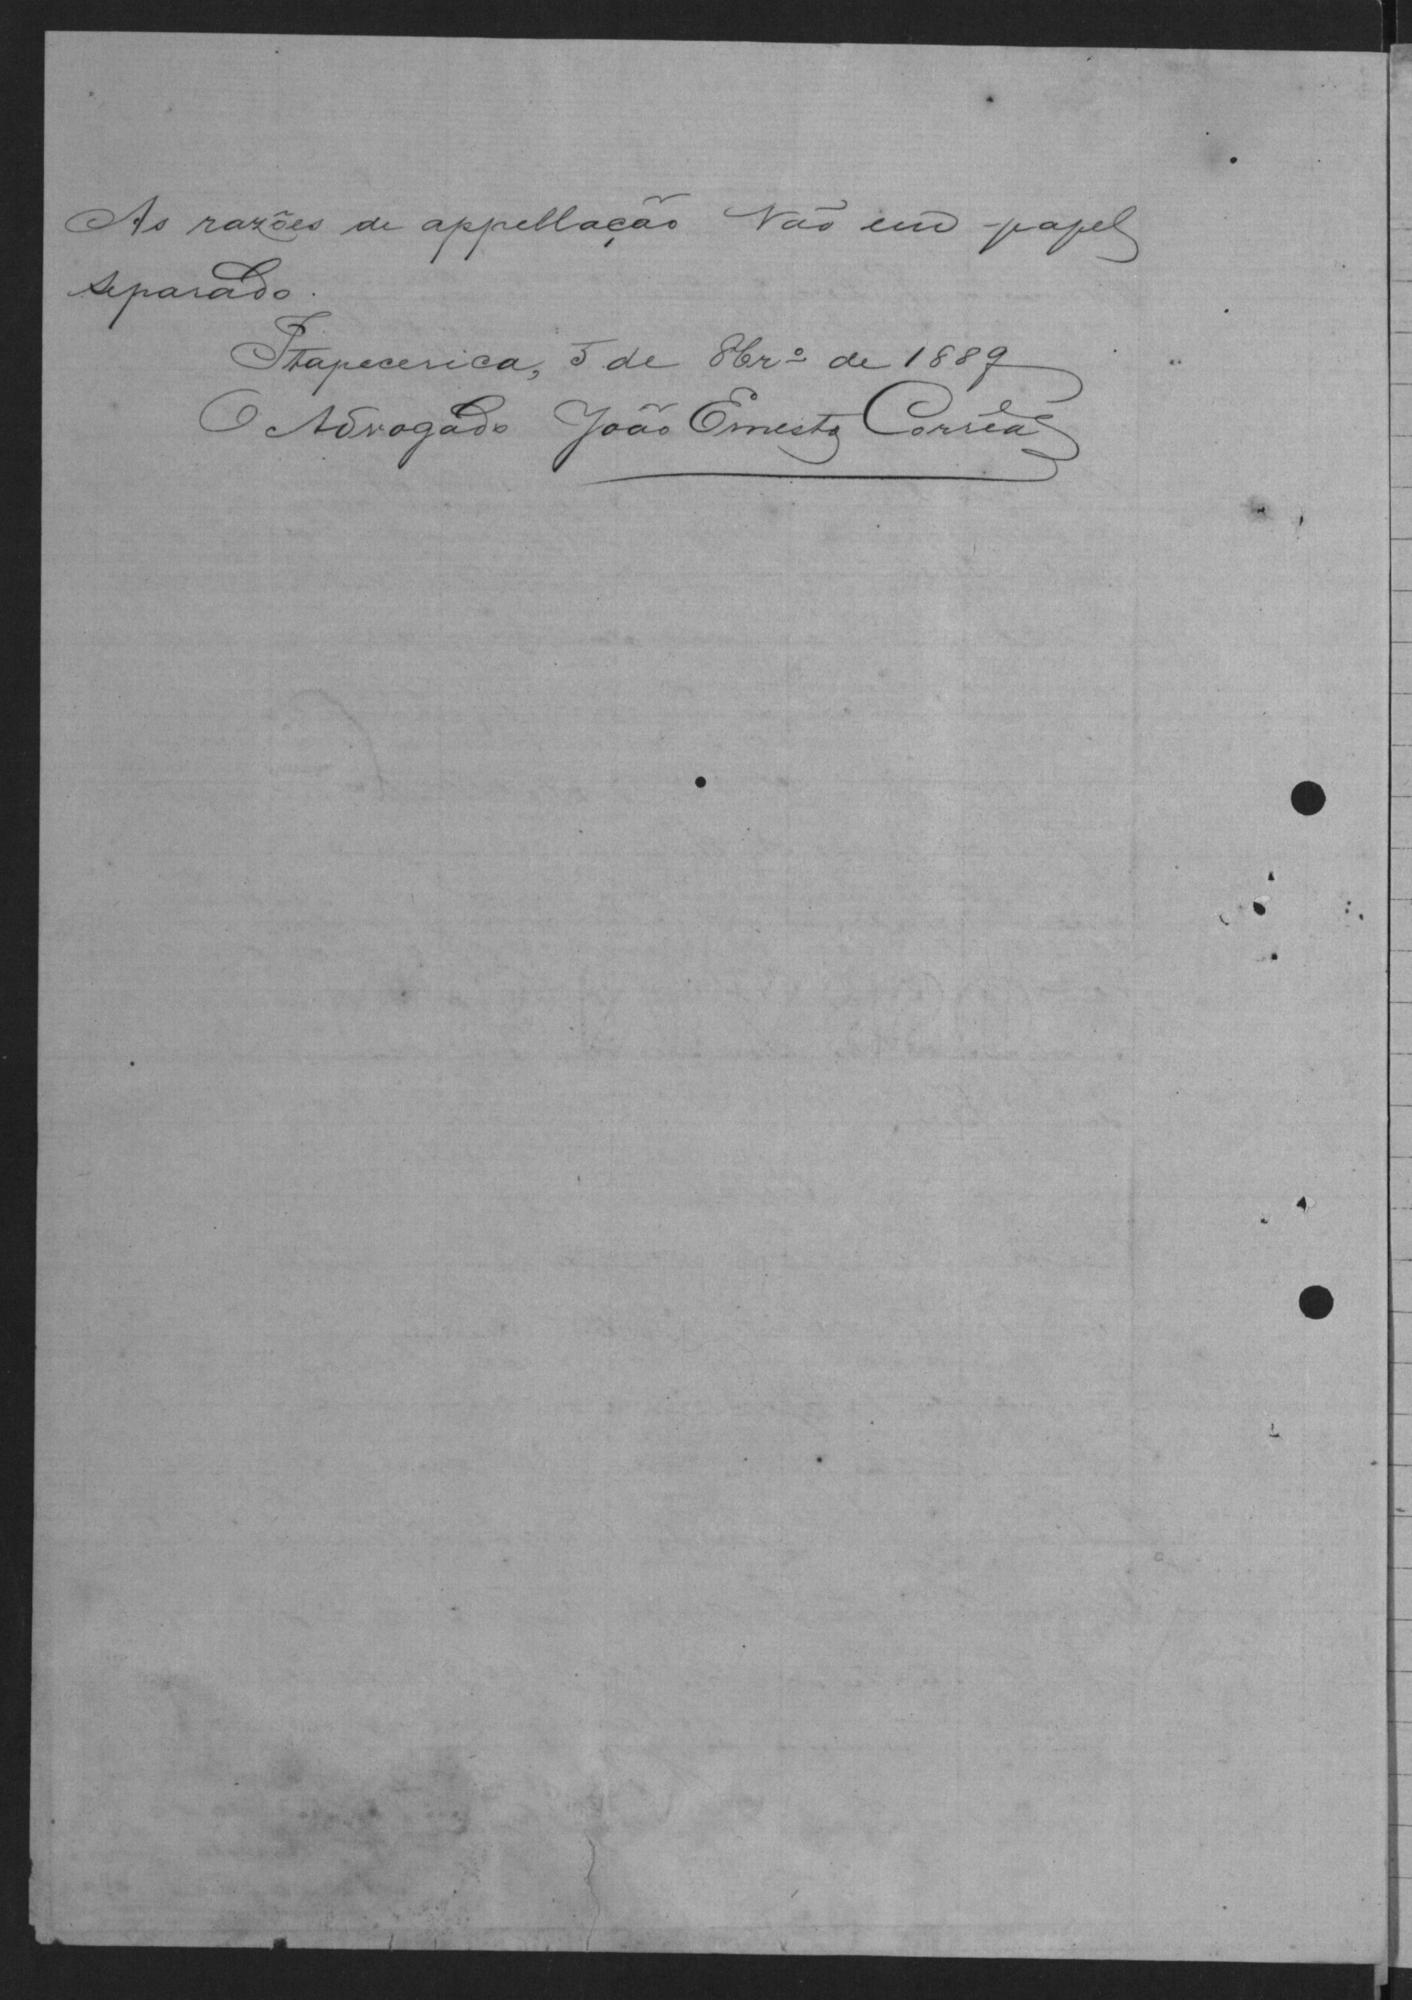 As razões de appellação vão em papel
separado.
Itapecerica, 5 de 8brº de 1889
O Advogado João Ernesto Corrêa